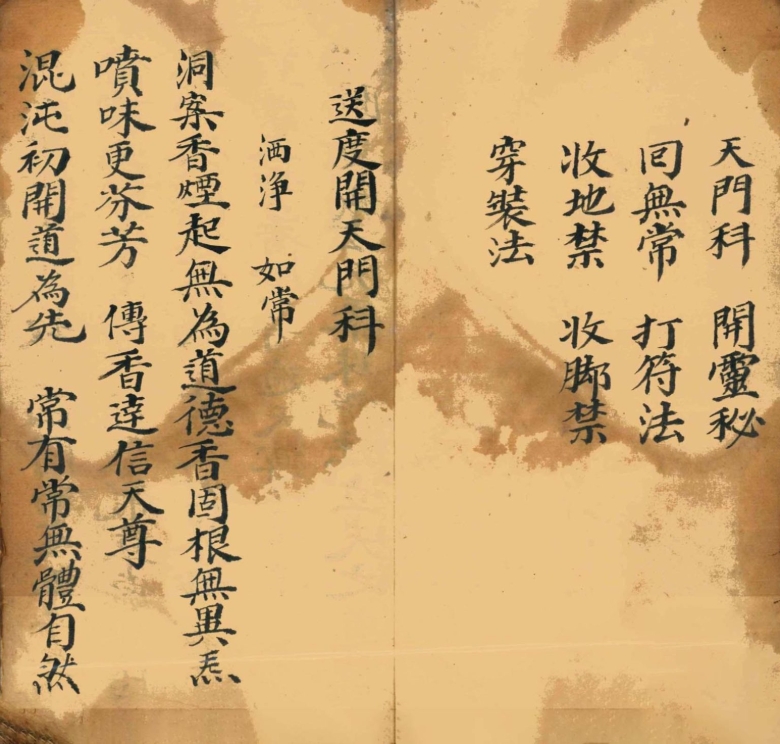 天門科 開靈秘
同無常 打符法
收地禁 收脚禁
穿裝法
送度開天門科
洒净 如常
洞案香煙起無為道德香固根無異炁
噴味更芬芳 傳香達信天尊
混沌初開道為先 常有常無體自然